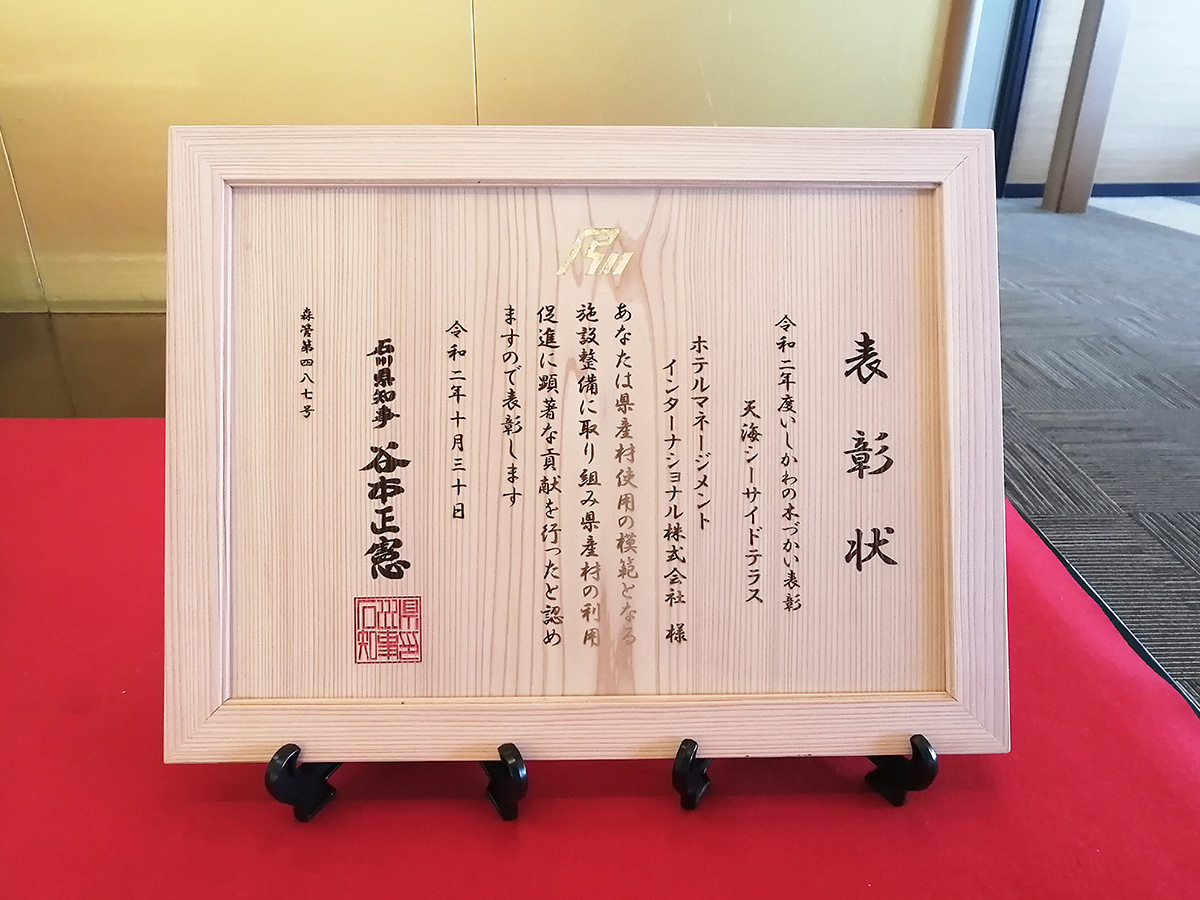 表彰状
令和二年度いしかわの木づかい表彰
天海シーサイドテラス
ホテルマネージメント
インターナショナル株式会社 様
あなたは県産材使用の模範となる
施設整備に取り組み県産材の利用
促進に顕著な貢献を行ったと認め
ますので表彰します
令和二年十月三十日
石川県知事 谷本正憲
森管第四八七号